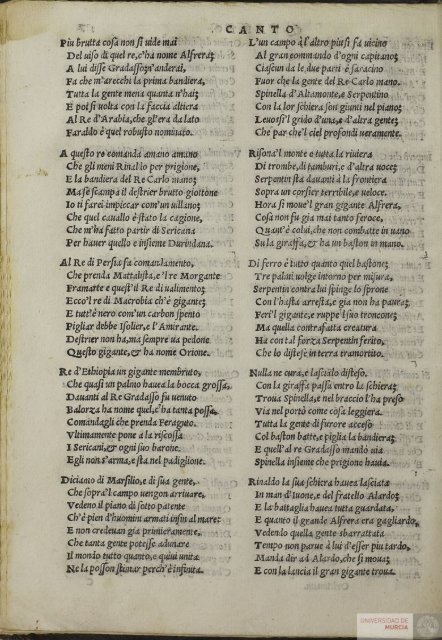 CANTO
Piu brutta cosa non si uide mai
Del uiso di quel re, c'ha nome Alfrera;
A lui disse Gradasso; n'anderai,
Fa che m'arechi la prima bandiera,
Tutta la gente mena quanta n'hai;
E poi si uolta con la faccia altiera
Al Re d'Arabia, che gl'era da lato
Faraldo è quel robusto nominato.
A questo re comanda amano amano
Che gli meni Rinaldo per prigione,
E la bandiera del Re Carlo mano;
Ma se scampa il destrier brutto giottone
Io ti farei impiccar com'un uillano;
Che quel cauallo è stato la cagione,
Che m'ha fatto partir di Sericana
Per hauer quello e insieme Durindana.
Al Re di Persia fa comandamento,
Che prenda Mattalista, e'l re Morgante
Framarte e quest'il Re di ualimento;
Ecco'l re di Macrobia ch'è gigante;
E tutt'è nero com'un carbon spento
Pigliar debbe Isolier, e l'Amirante.
Destrier non ha, ma sempre ua pedone
Questo gigante, & ha nome Orione.
Re d'Ethiopia un gigante membruto,
Che quasi un palmo hauea la bocca grossa,
Dauanti al Re Gradasso fu uenuto
Balorza ha nome quel, e'ha tanta possa,
Comandagli che prenda Feraguto.
Vltimamente pone a la riscossa
I Sericani, & ogni suo barone.
Egli non s'arma, e sta nel padiglione.
Diciamo di Marsilio, e di sua gente,
Che sopra'l campo uengon arriuare,
Vedeno il piano di sotto patente
Ch'è pien d'huomini armati infin al mare:
E non credeuan gia primieramente,
Che tanta gente potesse adunare
Il mondo tutto quanto, e quiui unita
Ne la posson stimar perch'è infinita.
L'un campo a l'altro piu si fa uicino
Al gran commando d'ogni capitano;
Ciascun da le due parti è saracino
Fuor che la gente del Re Carlo mano.
Spinella d'Altamonte, e Serpentino
Con la lor schiera son giunti nel piano;
Leuosi'l grido d'una, e d'altra gente;
Che par che'l ciel profondi ueramente.
Risona'l monte e tutta la riuiera
Di trombe, di tamburi, e d'altra uoce;
Serpentin sta dauanti a la frontiera
Sopra un corsier terribile, e ueloce.
Hora si moue'l gran gigante Alfrera,
Cosa non fu gia mai tanto feroce,
Quant'è colui, che non combatte in uano
Su la giraffa, & ha un baston in mano.
Di ferro è tutto quanto quel bastone;
Tre palmi uolge intorno per misura,
Serpentin contra lui spinge lo sprone
Con l'hasta arresta, e gia non ha paura;
Feri'l gigante, e ruppe il suo troncone;
Ma quella contrafatta creatura
Ha con tal forza Serpentin ferito,
Che lo distese in terra tramortito.
Nulla ne cura, e lasciato disteso.
Con la giraffa passa entro la schiera;
Troua Spinella, e nel braccio l'ha preso
Via nel portò come cosa leggiera.
Tutta la gente di furore acceso
Col baston batte, e piglia la bandiera;
E quell'al re Gradasso mandò uia
Spinella insieme che prigione hauia.
Rinaldo la sua schiera hauea lasciata
In man d'Iuone, e del fratello Alardo;
E la battaglia hauea tutta guardata,
E quanto il grande Alfrera era gagliardo,
Vedendo quella gente sbarrattata
Tempo non parue a lui d'esser piu tardo,
Manda dir ad Alardo, che si moua;
E con la lancia il gran gigante troua.
UNIVERSIDAD DE
MURCIA